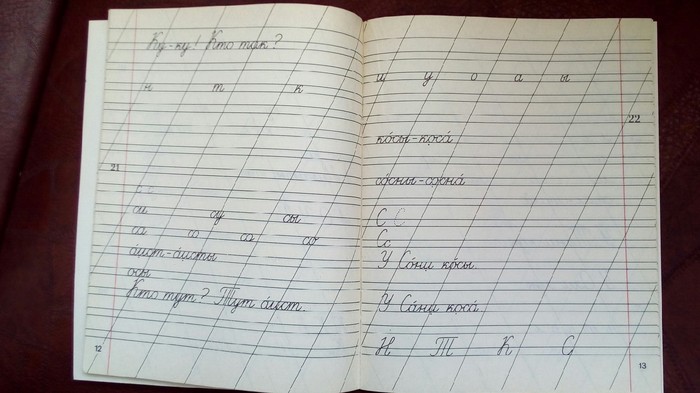 Ку-ку! Кто там?
н т к
21
с с
си су сы
са со са со
а́ист-а́исты
осы
Кто тут? Тут а́ист.
12
и у о а ы
22
ко́сы-коса́
со́сны-сосна́
С С
Сс
У Со́ни ко́сы.
У Са́ни коса́.
Н Т К С
13